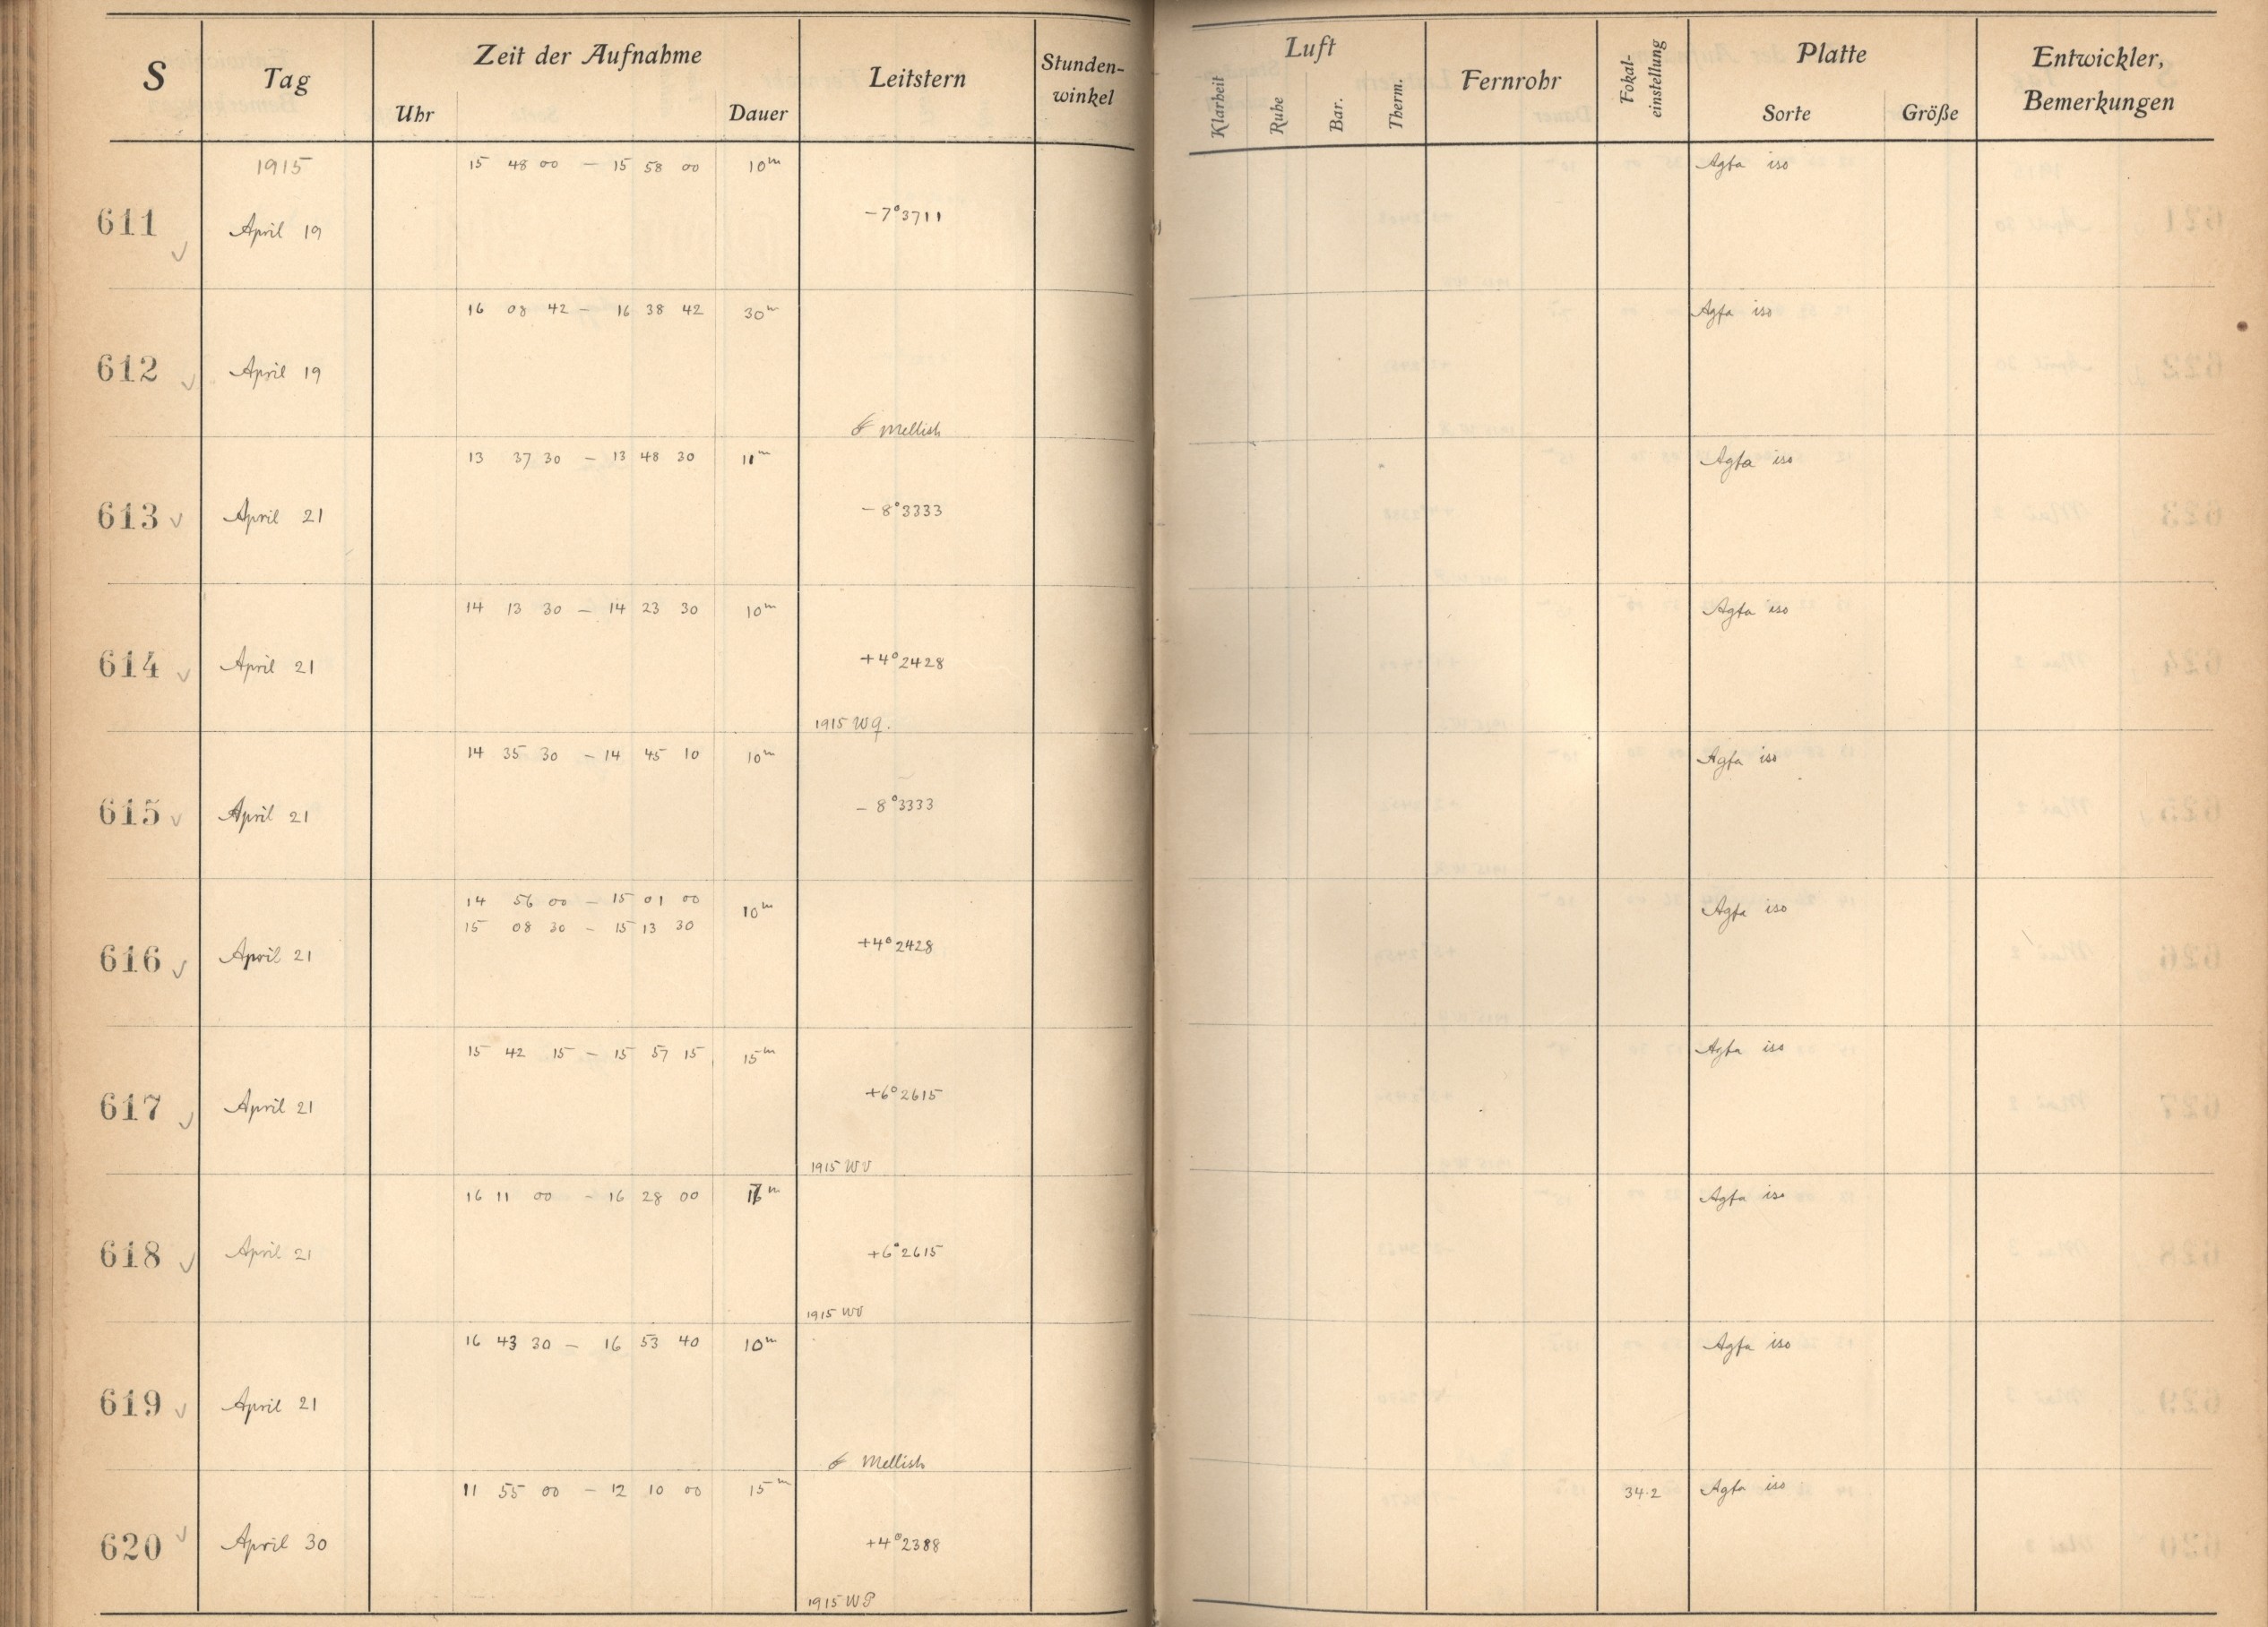 S Tag Zeit der Aufnahme Leitstern Stunden-winkel Luft Fernrohr Fokal-einstellung Platte Entwickler, Bemerkungen
Uhr Dauer Klarheit Ruhe Bar. Therm. Sorte Größe
1915 15 48 00 – 15 58 00 10m Agfa iso
611 April 19 –7°3711
16 08 42 – 16 38 42 30m Agfa iso
612 April 19
☄ Mellish
13 37 30 – 13 48 30 11m Agfa iso
613 April 21 –8°3333
14 13 30 – 14 23 30 10m Agfa iso
614 April 21 +4°2428
1915 WQ.
14 35 30 – 14 45 10 10m Agfa iso
615 April 21 –8°3333
14 56 00 – 15 01 00 10m Agfa iso
15 08 30 – 15 13 30
616 April 21 +4°2428
15 42 15 – 15 57 15 15m Agfa iso
617 April 21 +6°2615
1915 WV
16 11 00 – 16 28 00 17m Agfa iso
618 April 21 +6°2615
1915 WV
16 43 30 – 16 53 40 10m Agfa iso
619 April 21
☄ Mellish
11 55 00 – 12 10 00 15m 34.2 Agfa iso
620 April 30 +4°2388
1915 WP